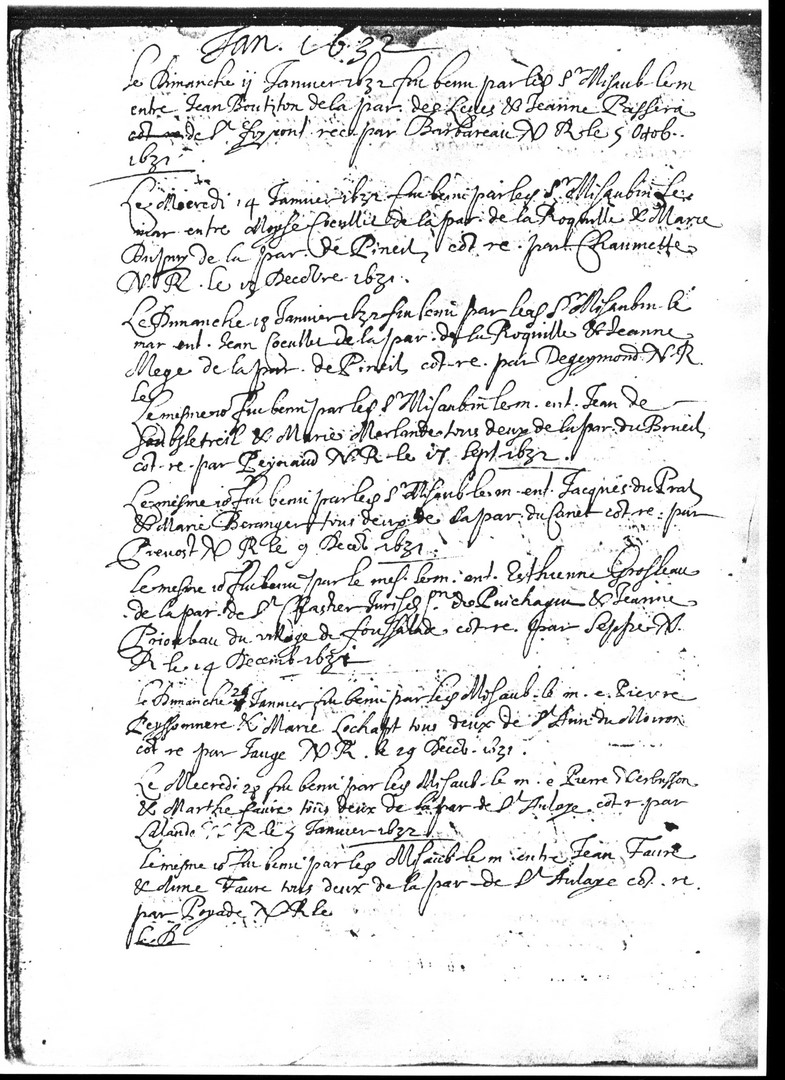 Jan. 1632
Le Dimanche 11 Janvier 1632 fut beni par led Sr Misaub. le m
entre Jean Boutiton de la par. des Leves & Jeanne Passera
de St recu par Barbareau N R le 5 Octob.
1631.
Le Mecredi 14 Janvier 1632 fut beni par led Sr Misaubin Le
mar entre Moyse Coeullet de la par. de la Roquille & Marie
Dupuy de la par. de Pineil cot re. par Chaumette
N. R. le Decebre 1631.
Le Dimanche 18 Janvier 1632 fut beni par led Sr Misaubin le
mar ent. Jean Coeullet de la par. de la Roquille & Jeanne
Mege de la par. de Pineil cot. re. par Degeymond N. R.
le
Le mesme io fut beni par led Sr Misaubin le m. ent. Jean de
& Marie Merlande tous deux de la par. du Brueil
cot. re. par Peynaud N. R. le 17 Sept 1632.
Le mesme io fut beni par led Sr Misaub. le m. ent. Jacques du Prat
& Marie Beranger tous deux de la par. du Canet cot. re. par
Prevost N R le 9 Deceb 1631.
Le mesme io fut beni par le mes. le m. ent. Esthienne Grosleau
de la par. de St de Puichagu & Jeanne
Prioubau du village de cot. re. par N.
R le 14 Decemb. 1631
Le Dimanche 25 Janvier fut beni par led Misaub. le m. e. Pierre
Peyssonniere & Marie tous deux de St du
cot re par Jauge N R. le 29 Deceb. 1631.
Le Mecredi 28 fut beni par led Misaub. le m. e Pierre
& Marthe Faure tous deux de la par de St Aulaye cot. r. par
Lalande R le 5 Janvier 1632
Le mesme io fut beni par led Misaub le m. entre Jean Faure
& Anne Faure tous deux de la par. de St Aulaye cot. re.
par Poyade N R le
Le D